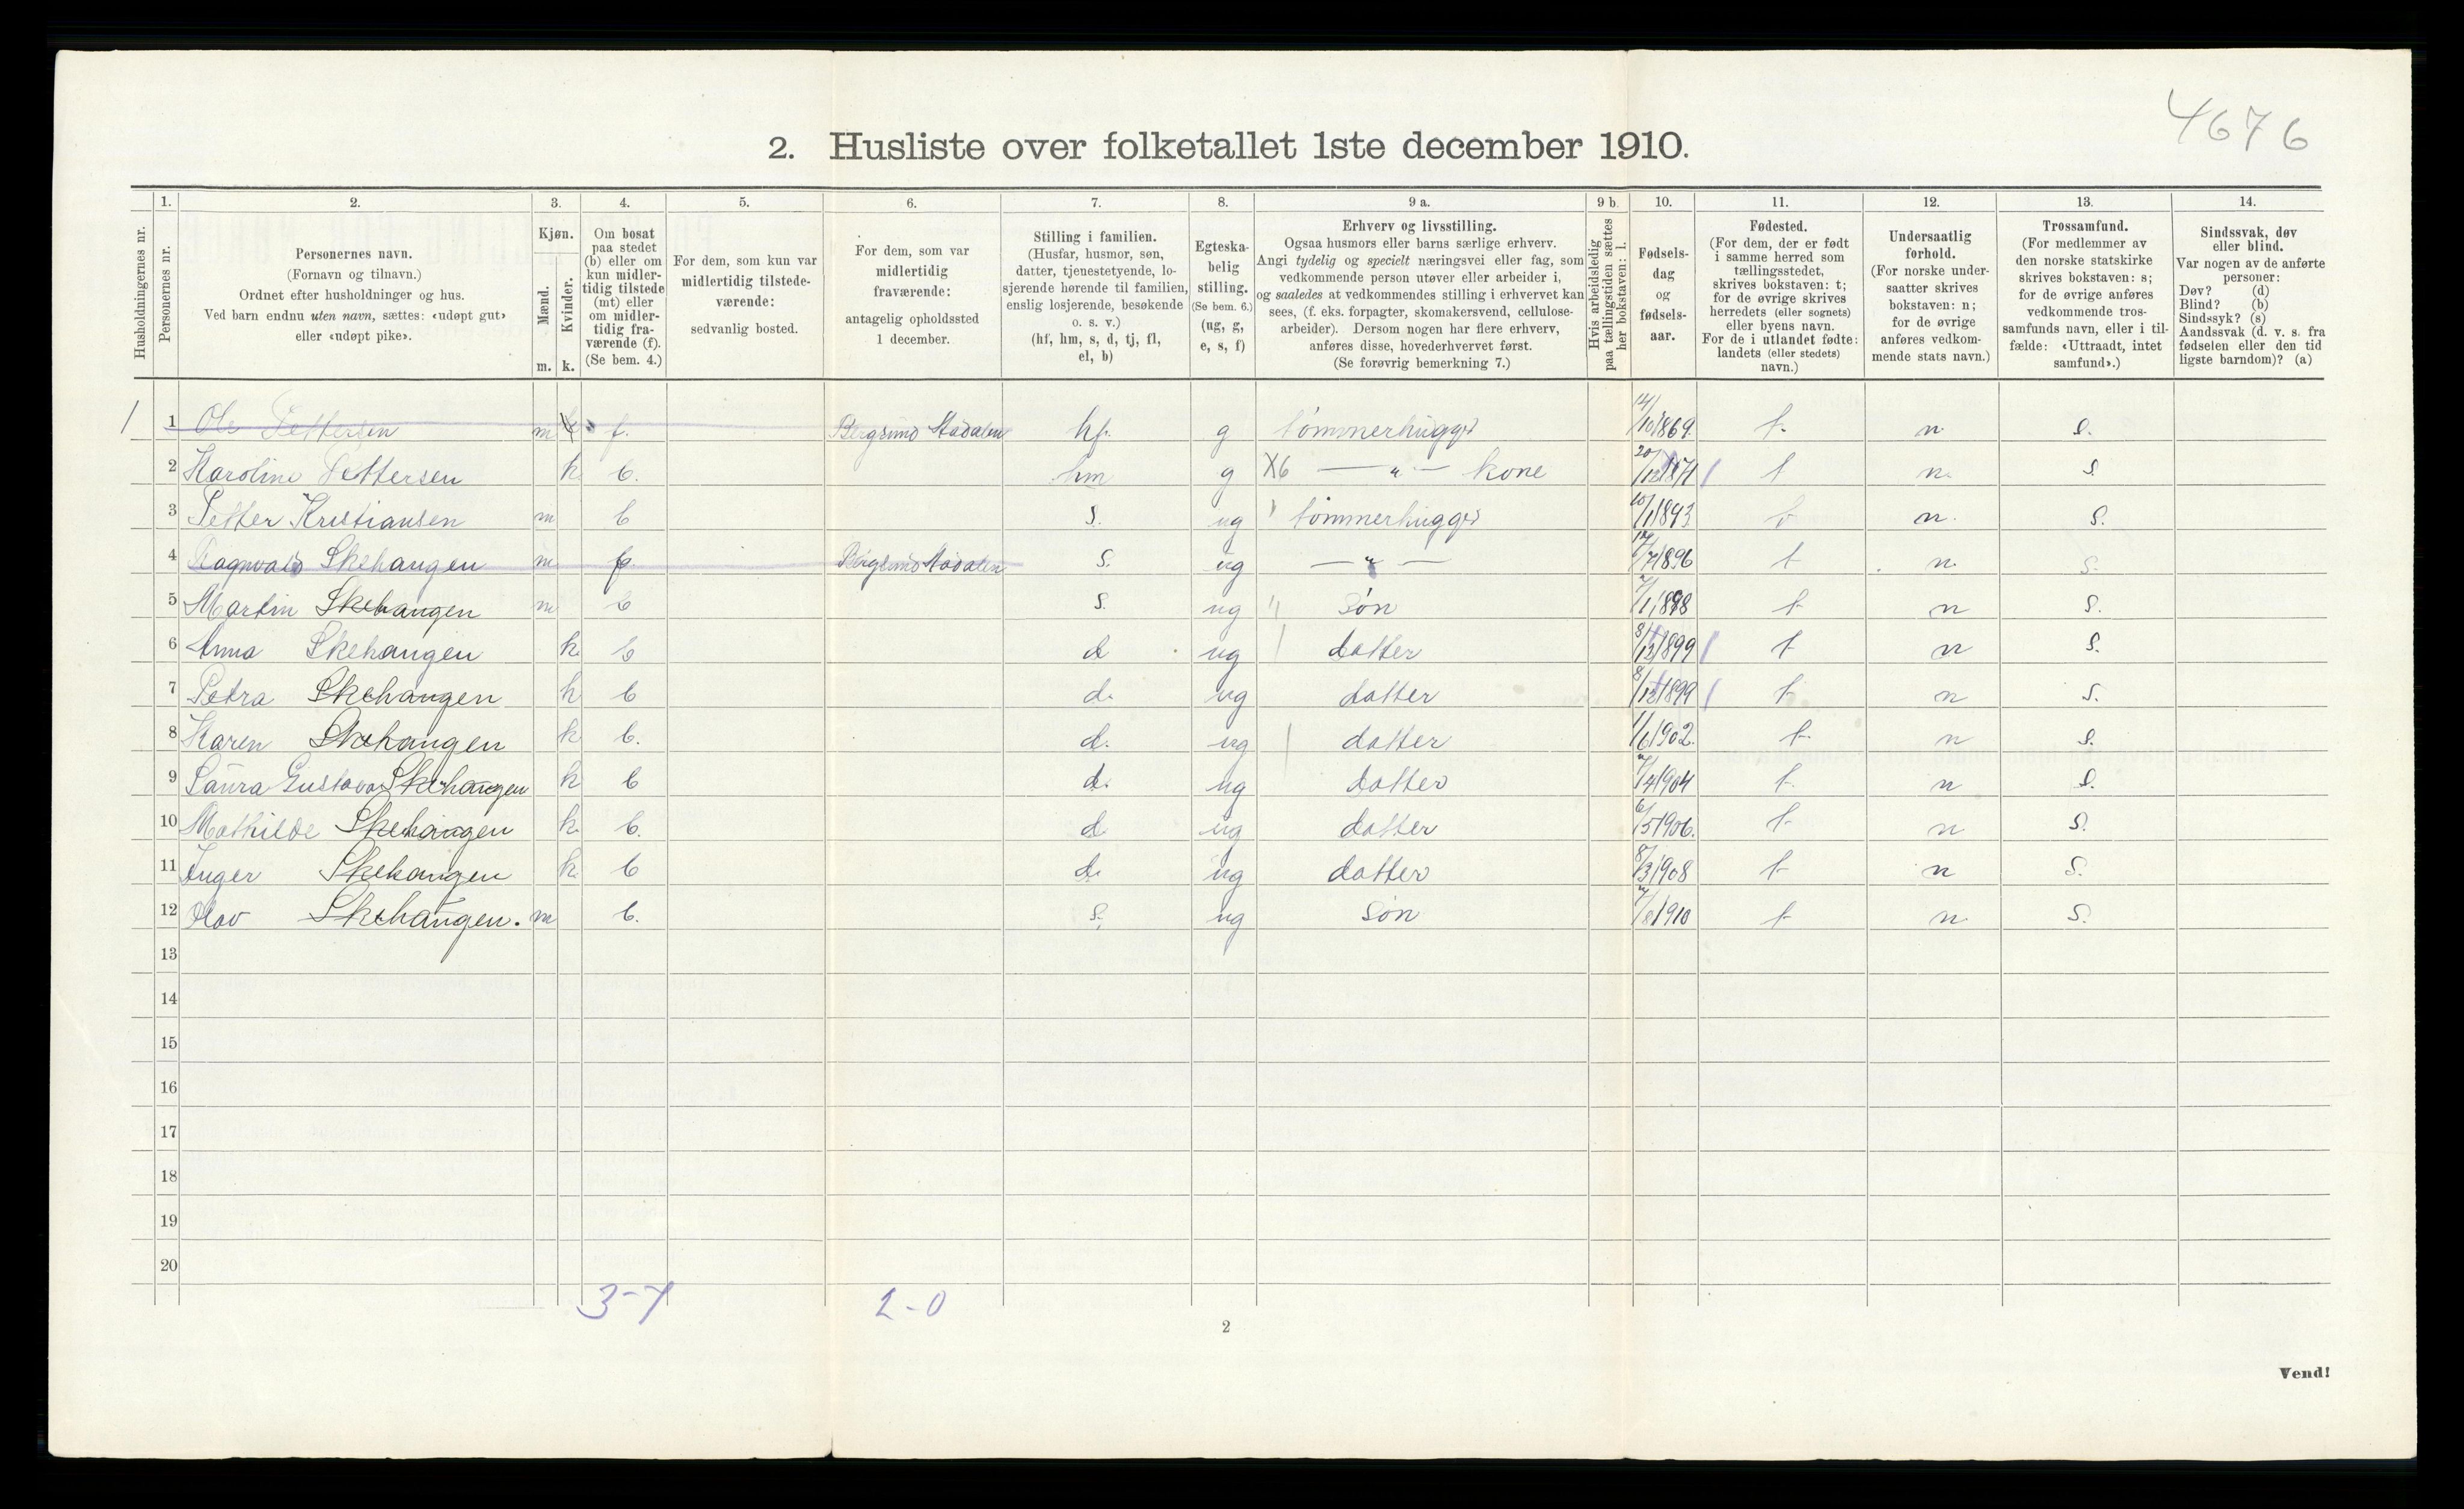 4676
2. Husliste over folketallet 1ste december 1910.
Husholdningernes nr.
1. Personernes nr.
2. Personernes navn. (Fornavn og tilnavn.) Ordnet efter husholdninger og hus. Ved barn endnu uten navn, sættes: «udøpt gut» eller «udøpt pike».
3. Kjøn. Mænd. m. Kvinder. k.
4. Om bosat paa stedet (b) eller om kun midlertidig tilstede (mt) eller om midlertidig fraværende (f). (Se bem. 4.)
5. For dem, som kun var midlertidig tilstedeværende: sedvanlig bosted.
6. For dem, som var midlertidig fraværende: antagelig opholdssted 1 december.
7. Stilling i familien. (Husfar, husmor, søn, datter, tjenestetyende, losjerende hørende til familien, enslig losjerende, besøkende o. s. v.) (hf, hm, s, d, tj, fl, el, b)
8. Egteskabelig stilling. (Se bem. 6.) (ug, g, e, s, f)
9 a. Erhverv og livsstilling. Ogsaa husmors eller barns særlige erhverv. Angi tydelig og specielt næringsvei eller fag, som vedkommende person utøver eller arbeider i, og saaledes at vedkommendes stilling i erhvervet kan sees, (f. eks. forpagter, skomakersvend, cellulosearbeider). Dersom nogen har flere erhverv, anføres disse, hovederhvervet først. (Se forøvrig bemerkning 7.)
9 b. Hvis arbeidsledig paa tællingstiden sættes her bokstaven: l.
10. Fødselsdag og fødselsaar.
11. Fødested. (For dem, der er født i samme herred som tællingsstedet, skrives bokstaven: t; for de øvrige skrives herredets (eller sognets) eller byens navn. For de i utlandet fødte: landets (eller stedets) navn.)
12. Undersaatlig forhold. (For norske undersaatter skrives bokstaven: n; for de øvrige anføres vedkommende stats navn.)
13. Trossamfund. (For medlemmer av den norske statskirke skrives bokstaven: s; for de øvrige anføres vedkommende trossamfunds navn, eller i tilfælde: «Uttraadt, intet samfund».)
14. Sindssvak, døv eller blind. Var nogen av de anførte personer: Døv? (d) Blind? (b) Sindssyk? (s) Aandssvak (d. v. s. fra fødselen eller den tidligste barndom)? (a)
1 1 Ole Pettersen m f. hf. g tømmerhugger 14/10 1869. t. n. s.
2 Karoline Pettersen k b. hm g X6 — „ — kone 20/12 1871 t n. s.
3 Petter Kristiansen m b s. ug tømmerhugger 10/1 1893 t n. s.
4 Ragnvald Skehaugen m f s. ug — „ — 17/7 1896 t n. s.
5 Martin Skehaugen m b s. ug søn 7/1 1898 t n s.
6 Anna Skehaugen k. b d ug datter 8/12 1899 t n s.
7 Petra Skehaugen k b d. ug datter 8/12 1899 t n s.
8 Karen Skehaugen k b. d. ug datter 1/6 1902. t. n s.
9 Laura Gustava Skehaugen k b d. ug datter 7/4 1904 t. n s.
10 Mathilde Skehaugen k. b. d ug datter 6/5 1906. t n s.
11 Inger Skehaugen k. b d. ug datter 8/3 1908 t n s.
12 Olav Skehaugen. m b. s. ug søn 7/8 1910 t n. s.
13
14
15
16
17
18
19
20
3-7 2-0
2
Vend!